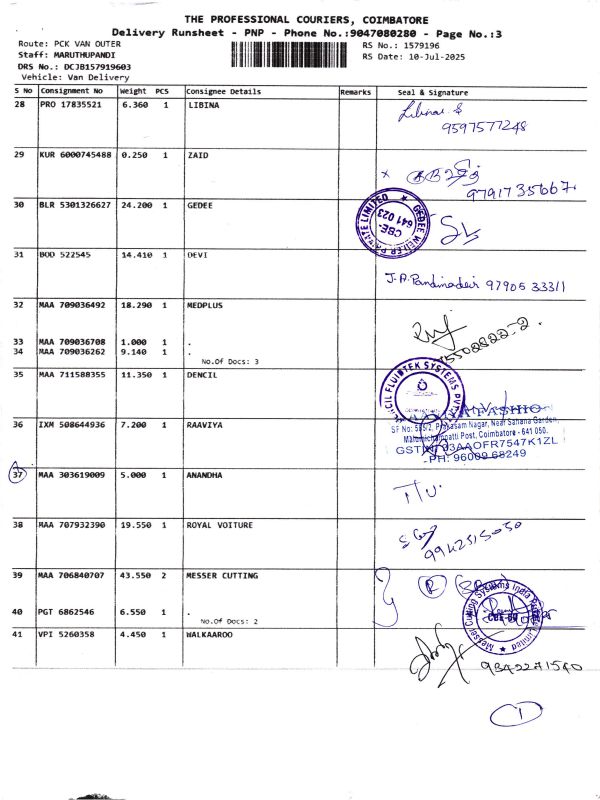 THE PROFESSIONAL COURIERS, COIMBATORE
Delivery Runsheet - PNP - Phone No.:9047080280 - Page No.:3
Route: PCK VAN OUTER
RS No.: 1579196
Staff: MARUTHUPANDI
RS Date: 10-Jul-2025
DRS No.: DCJB157919603
Vehicle: Van Delivery
S No Consignment No Weight PCS Consignee Details Remarks Seal & Signature
28 PRO 17835521 6.360 1 LIBINA
9597577248
29 KUR 6000745488 0.250 1 ZAID
9791735667
30 BLR 5301326627 24.200 1 GEDEE
CBE-
641 023
31 BOD 522545 14.410 1 DEVI
97905 33311
32 MAA 709036492 18.290 1 MEDPLUS
33 MAA 709036708 1.000 1 .
34 MAA 709036262 9.140 1 .
No.Of Docs: 3
35 MAA 711588355 11.350 1 DENCIL
FLUIDTEK SYSTEMS
36 IXM 508644936 7.200 1 RAAVIYA
Prakasam Nagar, Near Sahana Garden,
Post, Coimbatore - 641 050.
PH: 96009 68249
37 MAA 303619009 5.000 1 ANANDHA
38 MAA 707932390 19.550 1 ROYAL VOITURE
9942515050
39 MAA 706840707 43.550 2 MESSER CUTTING
Messer Cutting Systems India Private Limited
40 PGT 6862546 6.550 1 .
No.Of Docs: 2
41 VPI 5260358 4.450 1 WALKAAROO
1